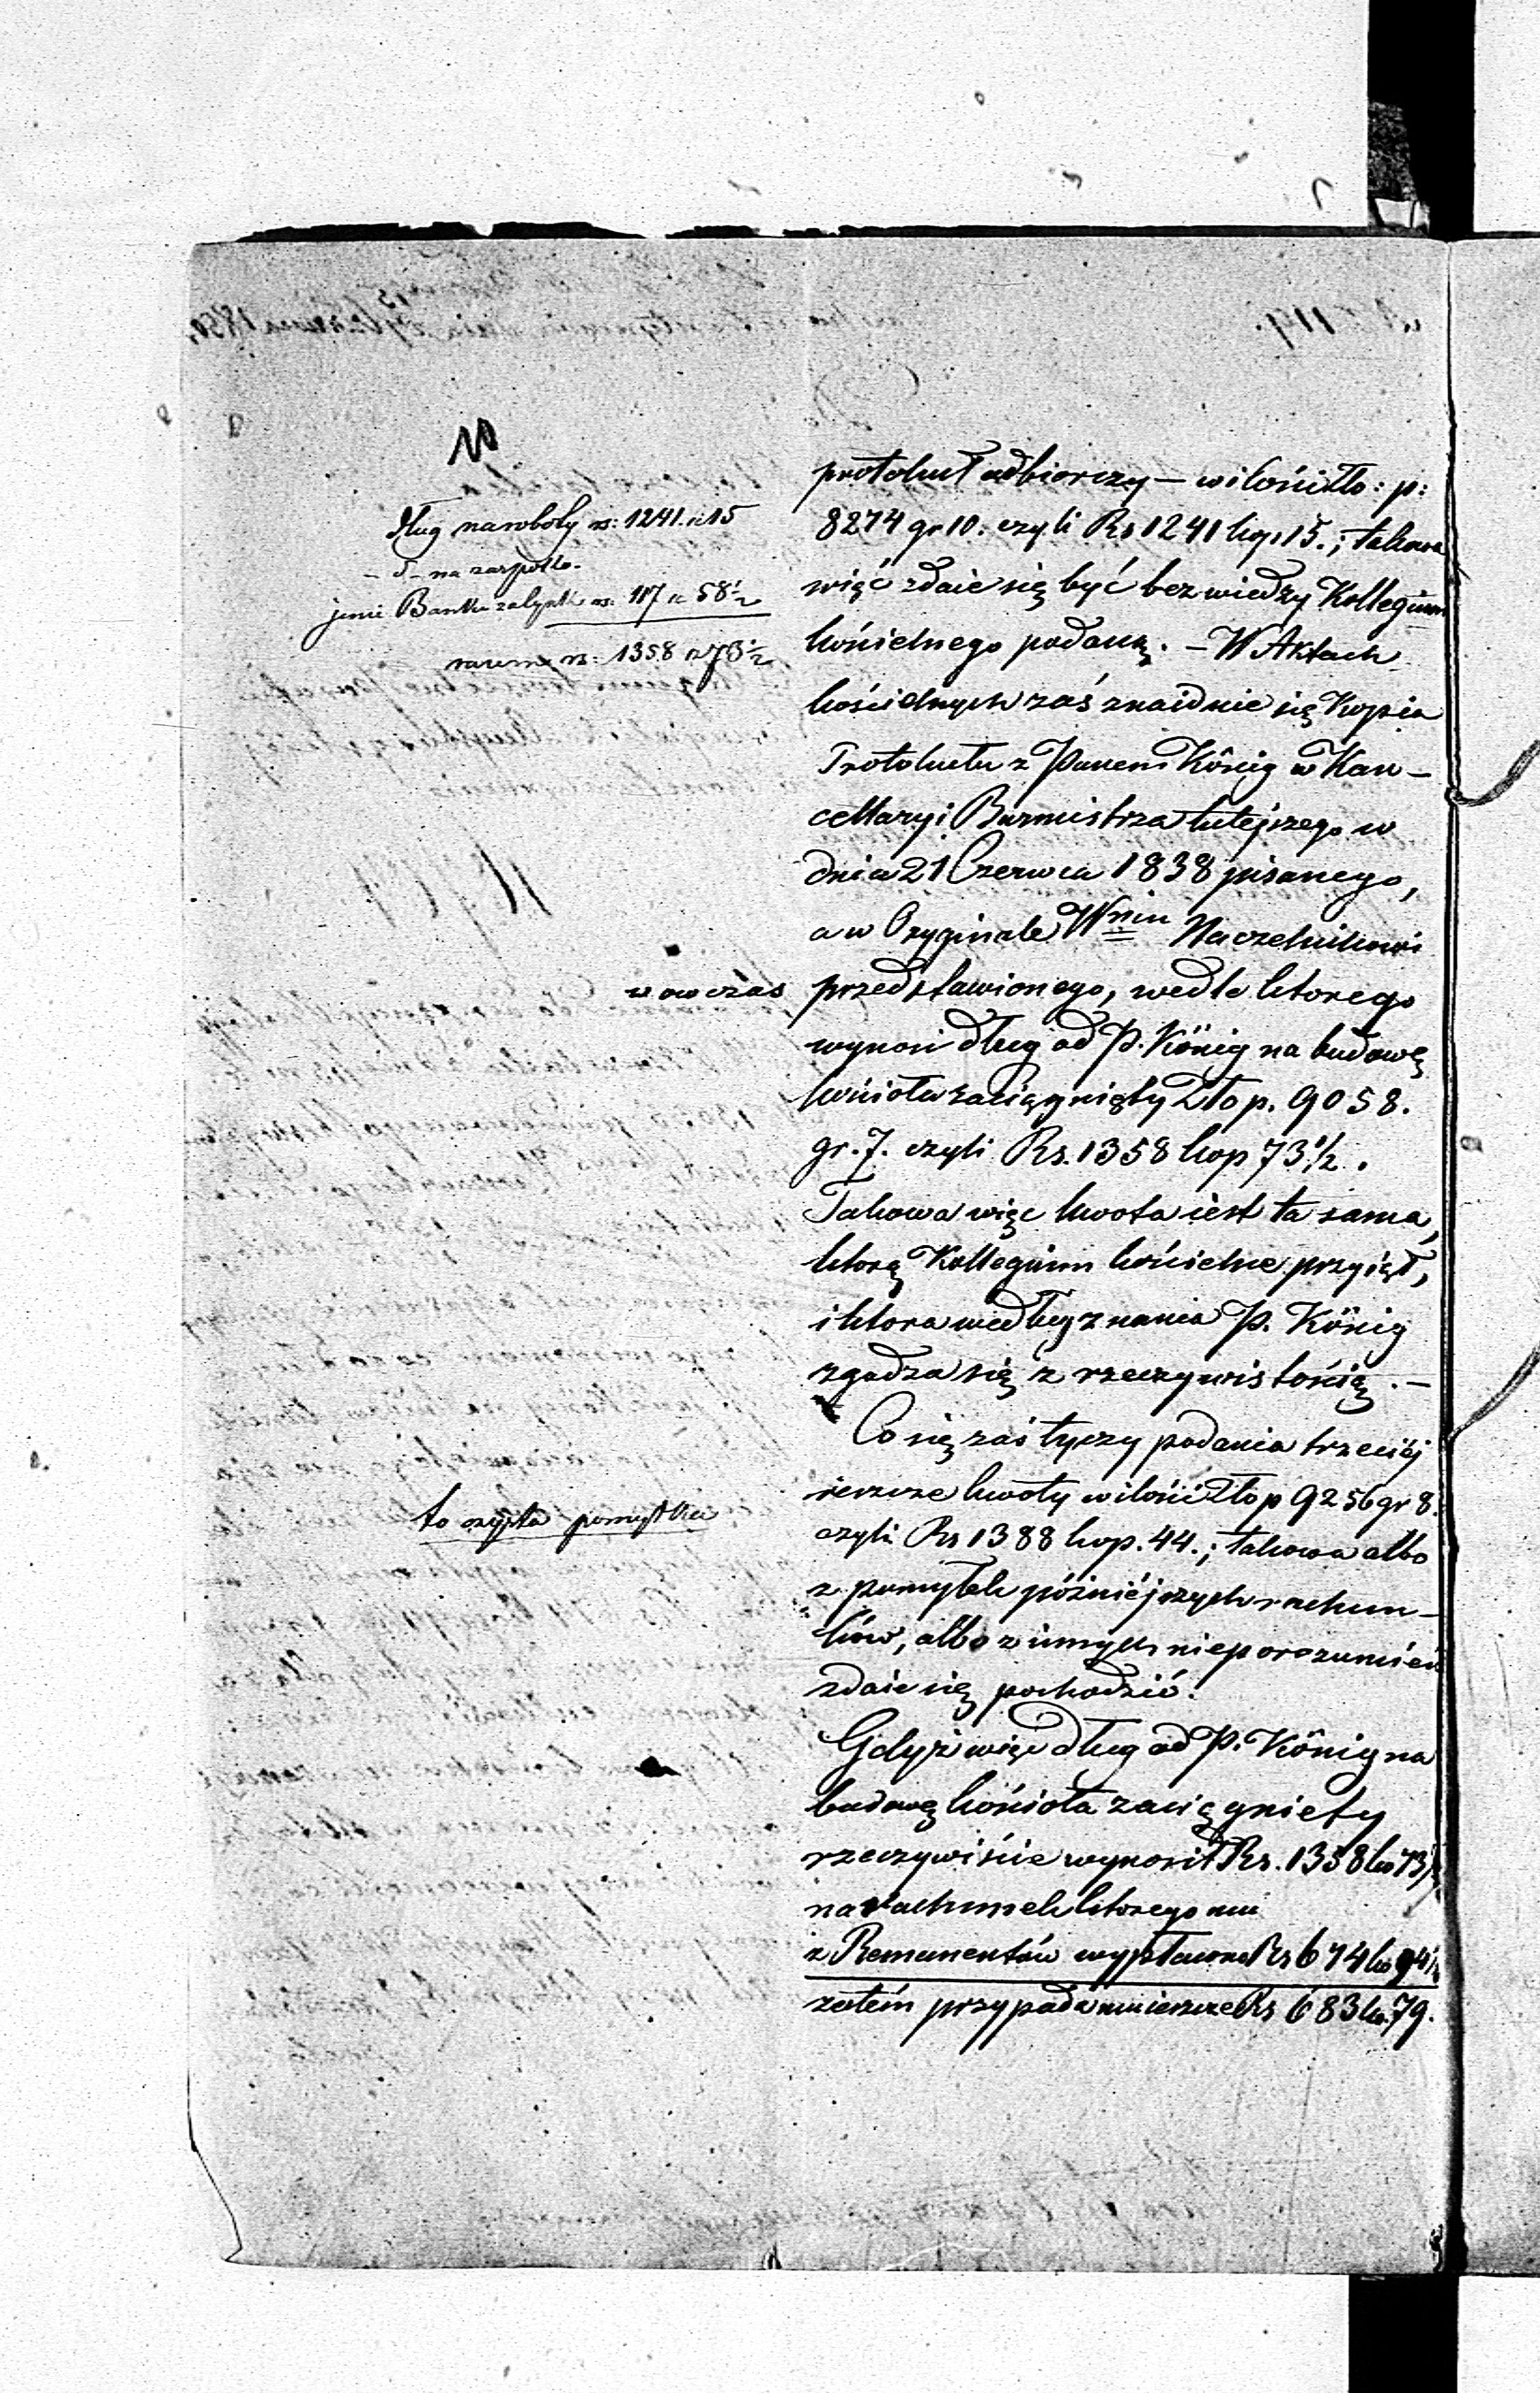 dług na roboty rs: 1241. k 15
– d – na zaspoko-
jenie Banku zabyṫk rs: 117 k 58½
razem rs: 1358 k 73½
wowczas
to czysta pomyłka
protokuł odbiorczy – w ilości Zło: p:
8274 gr 10. czyli Rs 1241 kop 15.; takowa
więc zdaie się być bez wiedzy Kollegium
kościelnego podaną. – W Aktach
kościelnych zaś znaidnie się Kopia
Protokułu z Panem König w Kan-
cellaryi Burmistrza tutejszego w
dniu 21 Czerwca 1838 pisanego,
a w Oryginale Wmu Naczelnikowi
przedstawionego, wedle ktorego
wynosi dług od P. König na budowę
kościoła zaciągnięty Złop. 9058.
gr. 7. czyli Rs. 1358 kop 73 ½.
Takowa więc kwota iest ta sama,
ktorą Kollegium kościelne przyięł,
i ktora według znania P. König
zgadza się z rzeczywistością. –
Co się zaś tyczy podania trzeciéj
ieszcze kwoty w ilości Złop 9256 gr 8.
czyli Rs 1388 kop. 44.; takowa albo
z pomyłek późniéjszych rachun-
ków, albo z innych nieporozumień
zdaie się pochodzić.
Gdyż więc dług od P. König na
budowę kościoła zaciągniety
rzeczywiście wynosił Rs. 1358 ko 73½
na rachunek ktorego mu
z Remanentów wypłacono Rs 674 ko 94½
zatém przypada mu ieszcze Rs 683 ko. 79.